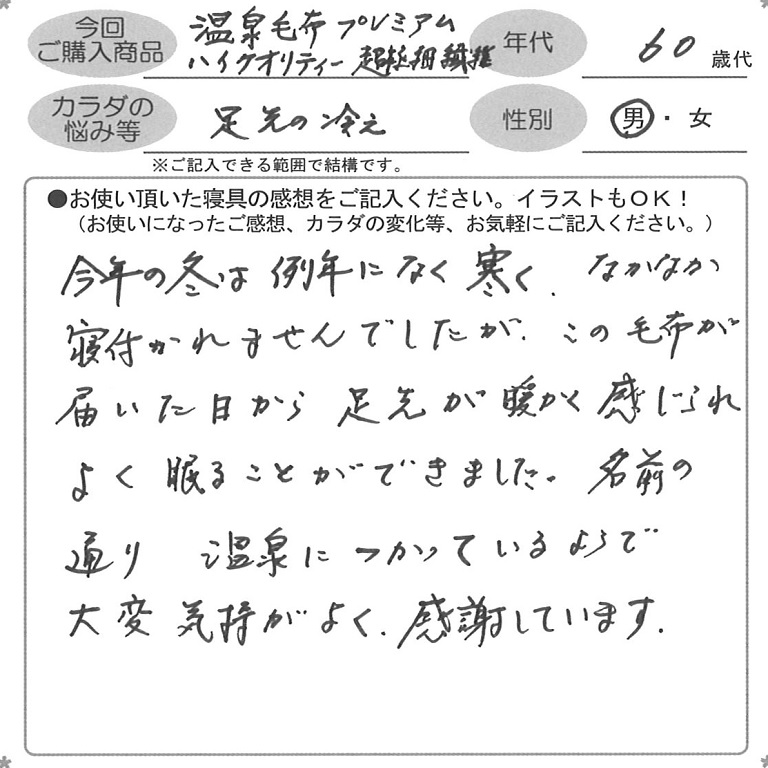 今回
ご購入商品
温泉毛布 プレミアム
ハイクオリティー 超極細繊維
年代
60 歳代
カラダの
悩み等
足先の冷え
性別
男・女
※ご記入できる範囲で結構です。
●お使い頂いた寝具の感想をご記入ください。イラストもOK！
（お使いになったご感想、カラダの変化等、お気軽にご記入ください。）
今年の冬は例年になく寒く、なかなか
寝付かれませんでしたが、この毛布が
届いた日から足先が暖かく感じられ
よく眠ることができました。名前の
通り 温泉につかっているようで
大変気持がよく、感謝しています。